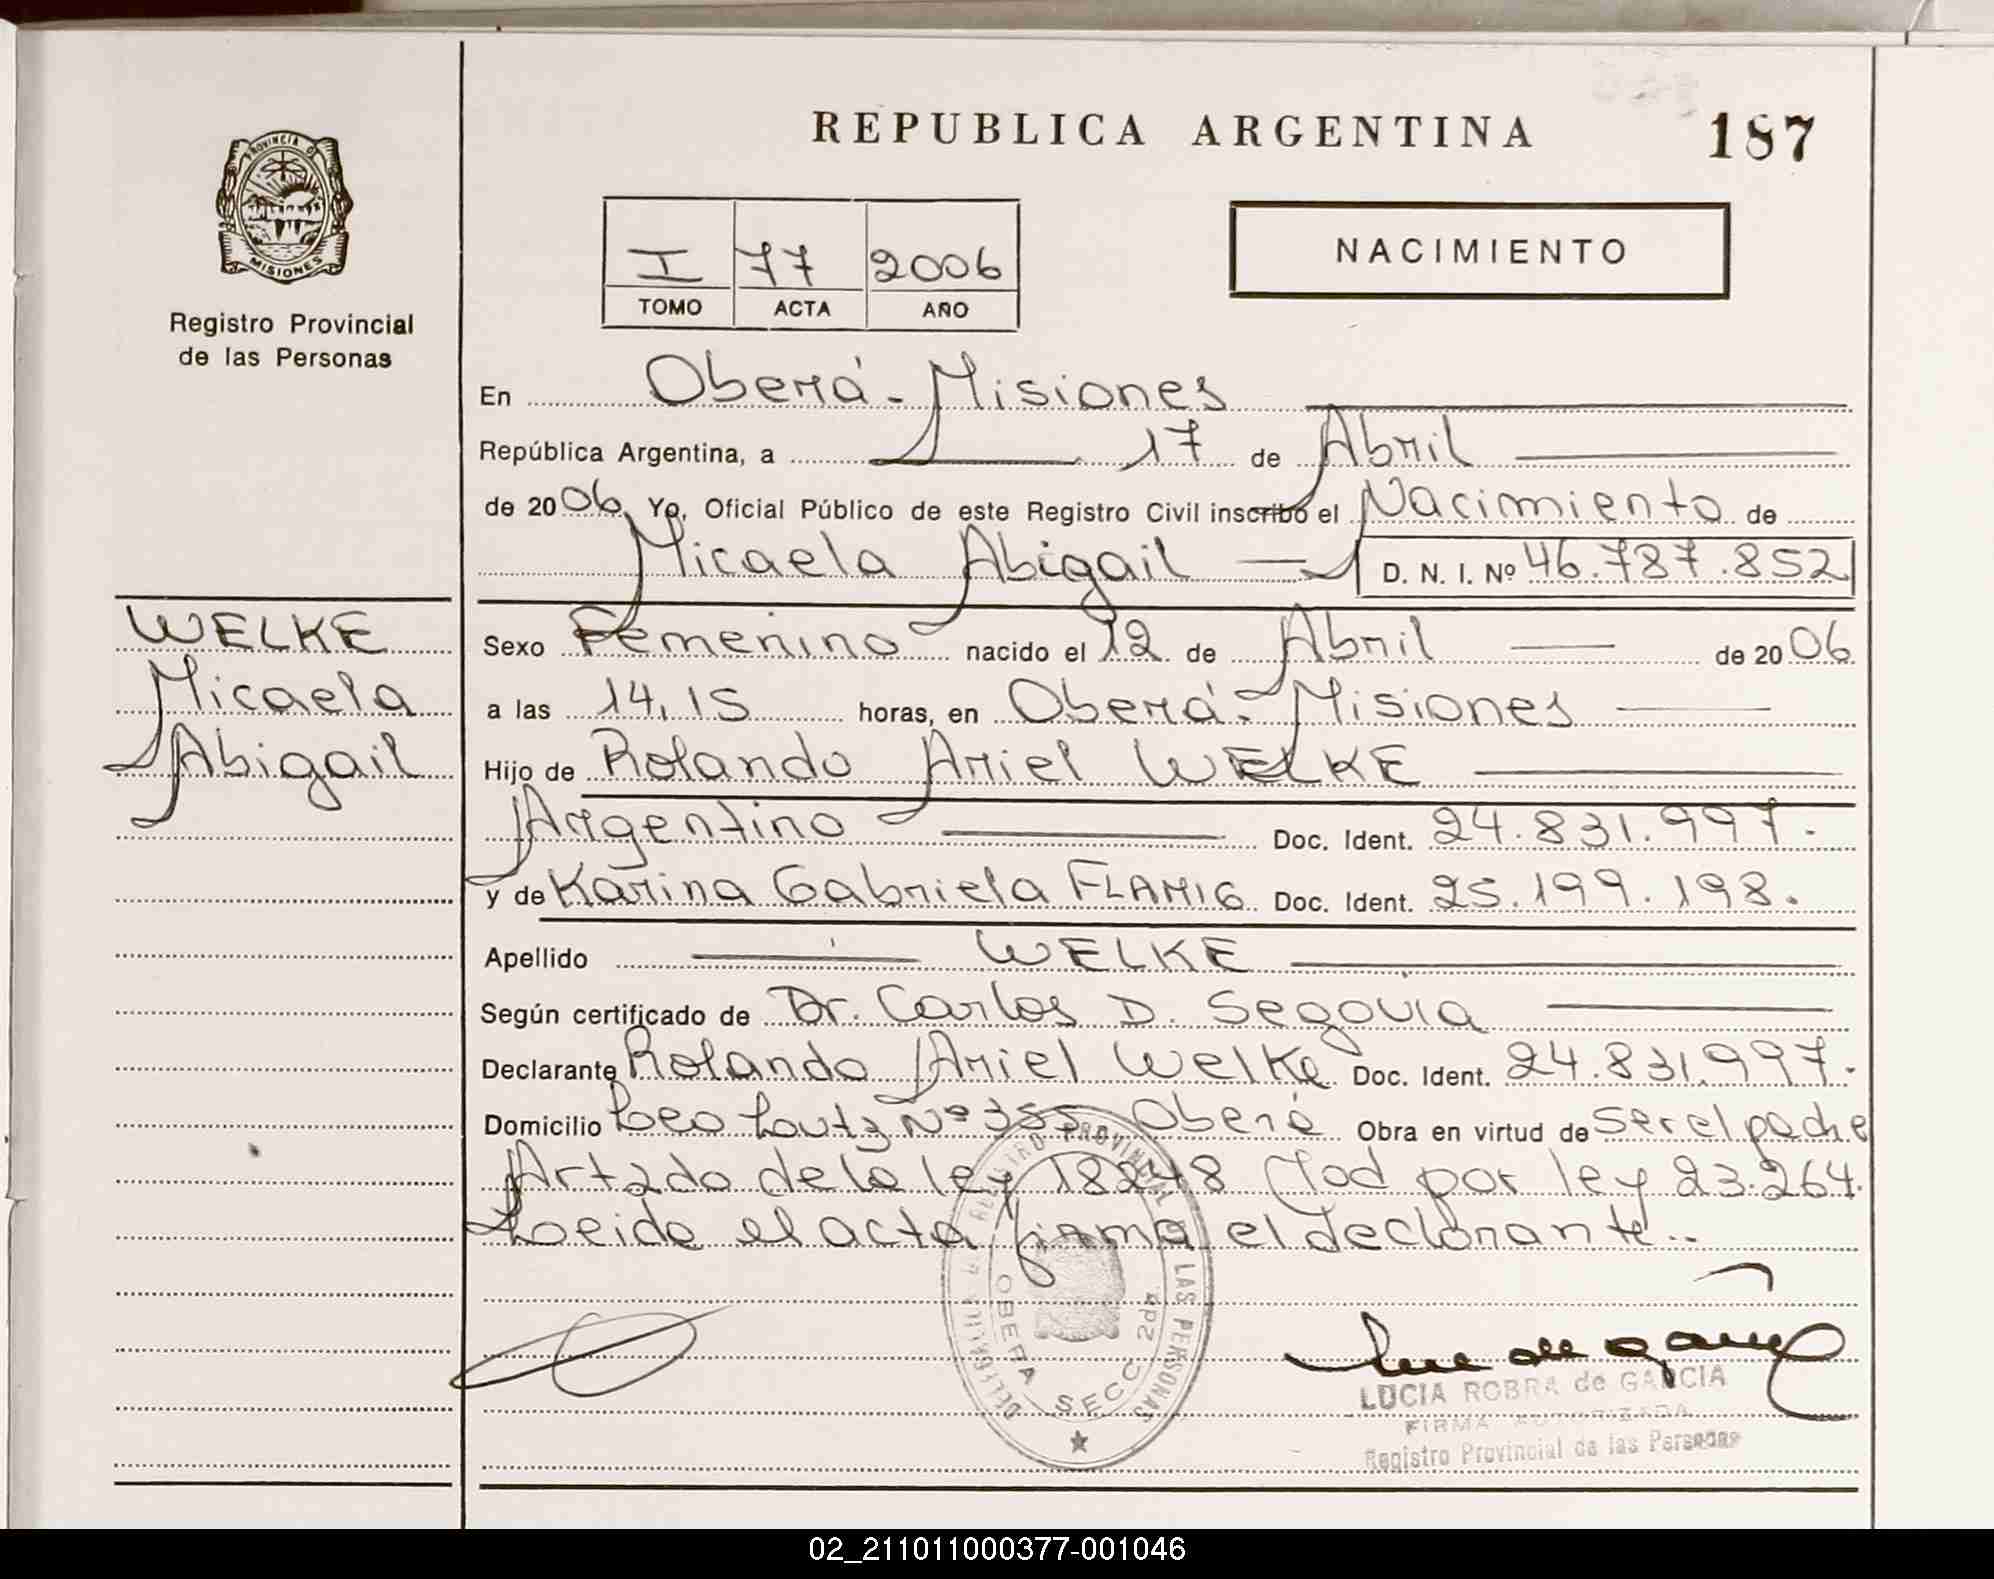 REPUBLICA ARGENTINA
187
PROVINCIA DE
MISIONES
Registro Provincial
de las Personas
I 77 2006
TOMO ACTA AÑO
NACIMIENTO
En Oberá - Misiones
República Argentina, a 17 de Abril
de 2006 Yo, Oficial Público de este Registro Civil inscribo el Nacimiento de
Micaela Abigail D. N. I. Nº 46.787.852
WELKE
Micaela
Abigail
Sexo Femenino nacido el 12 de Abril de 2006
a las 14,15 horas, en Oberá - Misiones
Hijo de Rolando Ariel WELKE
Argentino Doc. Ident. 24.831.997.
y de Karina Gabriela FLAMIG Doc. Ident. 25.199.198.
Apellido WELKE
Según certificado de Dr. Carlos D. Segovia
Declarante Rolando Ariel Welke Doc. Ident. 24.831.997.
Domicilio Leo Lutz Nº 355 Oberá Obra en virtud de ser el padre
Art 2do de la ley 18248 Mod por ley 23.264.
Leida el acta firma el declarante..
REGISTRO PROVINCIAL DE LAS PERSONAS
OBERA SECC. 2da
LUCIA ROBRA de GARCIA
FIRMA AUTORIZADA
Registro Provincial de las Personas
02_211011000377-001046